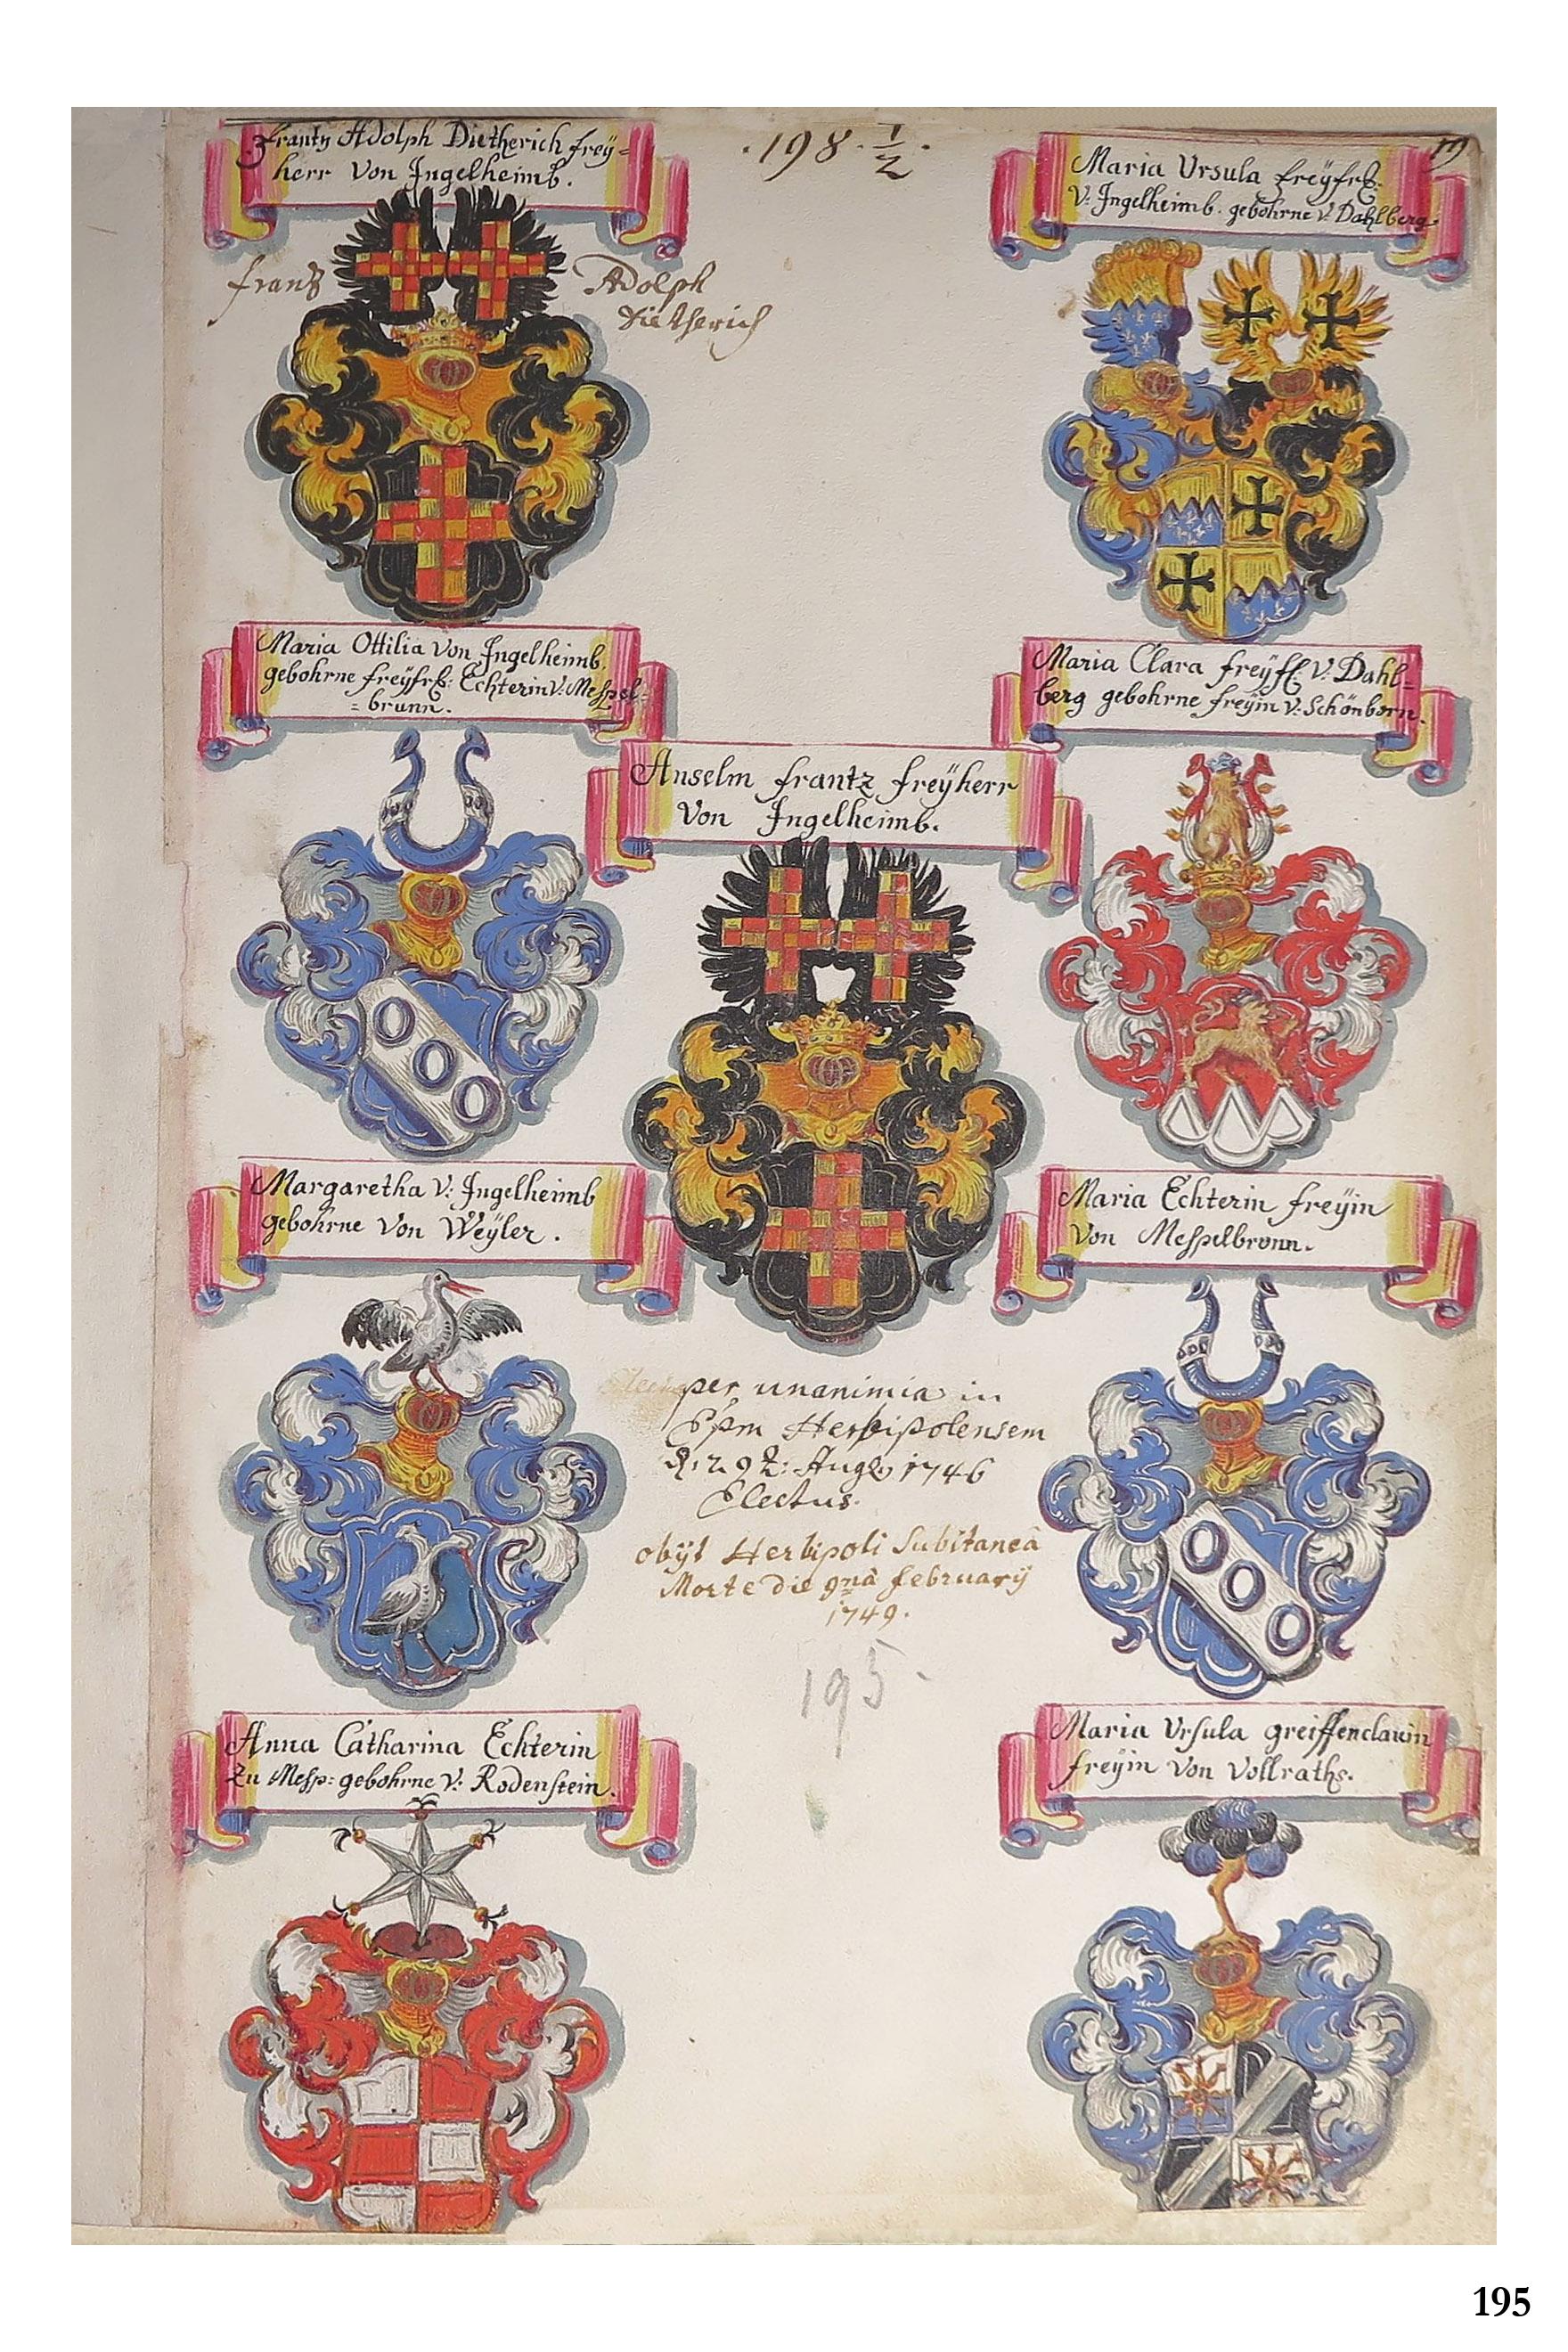 .198.1/2.
19
3 Frantz Adolph Dietherich frey=
herr Von Ingelheimb.
frantz Adolph
Dietherich
Maria Ursula freÿfrß.
V: Ingelheimb. gebohrne V: Dahlberg
Maria Ottilia Von Ingelheimb.
gebohrne freÿfrß: Echterin V: Mespel=
=brunn.
Maria Clara freÿfl. V: Dahl=
berg gebohrne freÿin V: Schönborn.
Anselm frantz freÿherr
Von Ingelheimb.
Margaretha V: Ingelheimb
gebohrne Von Weÿler.
Maria Echterin freÿin
Von Mespelbronn.
per unanimia in
Epm Herbipolensem
d. 29 t: Aug. 1746
Electus.
obijt Herbipoli Subitaneâ
Morte die 9nâ februarÿ
1749.
195.
Anna Catharina Echterin
Zu Mesp: gebohrne V: Rodenstein.
Maria Ursula greiffenclauin
freÿin Von Vollraths.
195